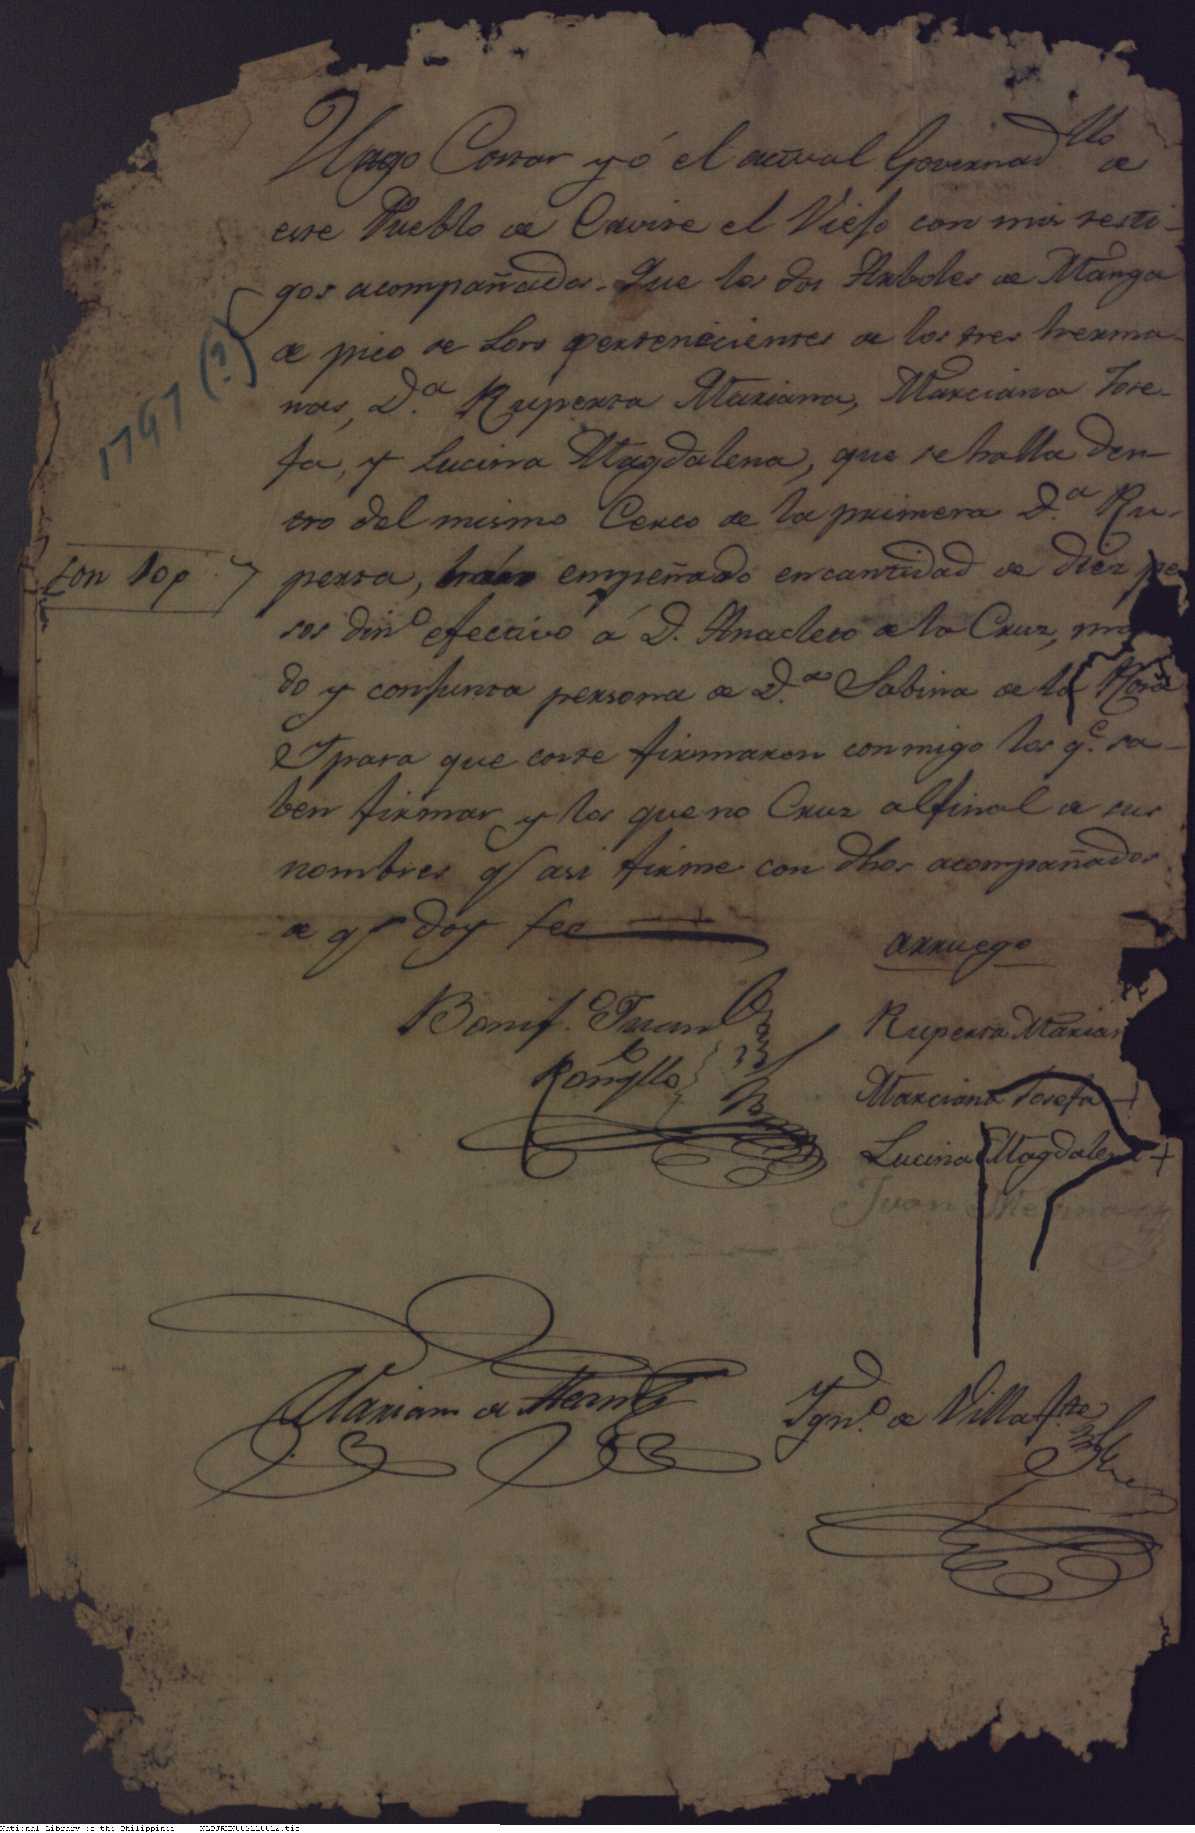 Hago Constar yó el actual Governad.llo de
este Pueblo de Cavite el Viejo con mis testi-
gos acompañados. Que los dos Arboles de Manga
de pico de Loro pertenecientes de los tres herma-
nas, D.a Ruperta Mariana, Marciana Jose-
fa, y Lucina Magdalena, que se halla den-
tro del mismo Cerco de la primera D.a Ru-
perta, empeñado en cantidad de diez pe
sos din.o efectivo á D. Anacleto de la Cruz,
do y conjunta persona de D.a Sabina de la
Y para que coste firmaron conmigo los q.e sa-
ben firmar y los que no Cruz al final de sus
nombres q asi firme con dhos acompañados
de q doy fee
1797 (?)
Son 10 p
arruego
Bonif. Juan
Ruperta Marian
Marciana Josefa +
Lucina Magdalena +
Juan
Mariano de
Ygn.o de Villafte
National Library of the Philippines